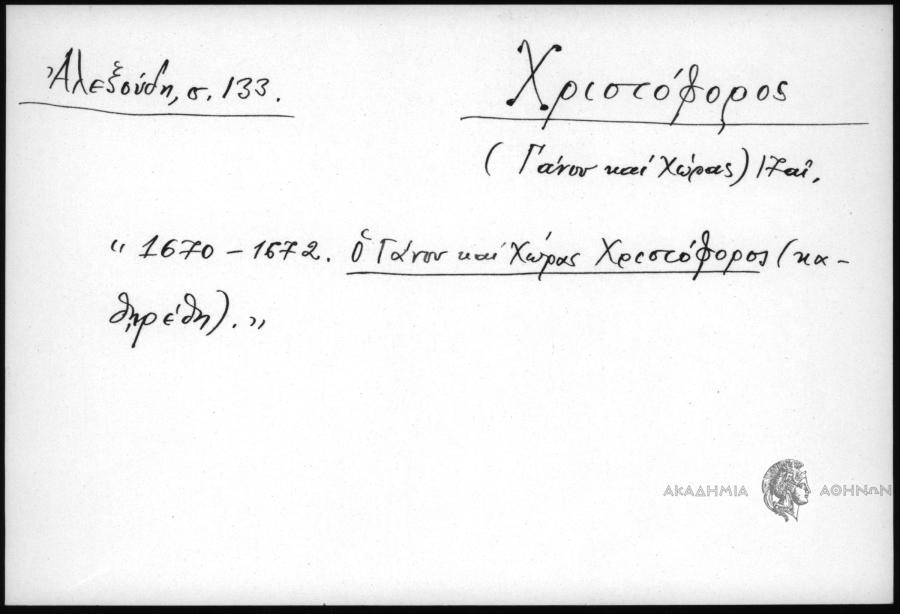 Ἀλεξούδη, σ. 133.
Χριστόφορος
(Γάνου καί Χώρας) 17αἰ.
“ 1670 – 1672. ὁ Γάνου καί Χώρας Χριστόφορος (κα-
θῃρέθη). ”
ΑΚΑΔΗΜΙΑ ΑΘΗΝΩΝ